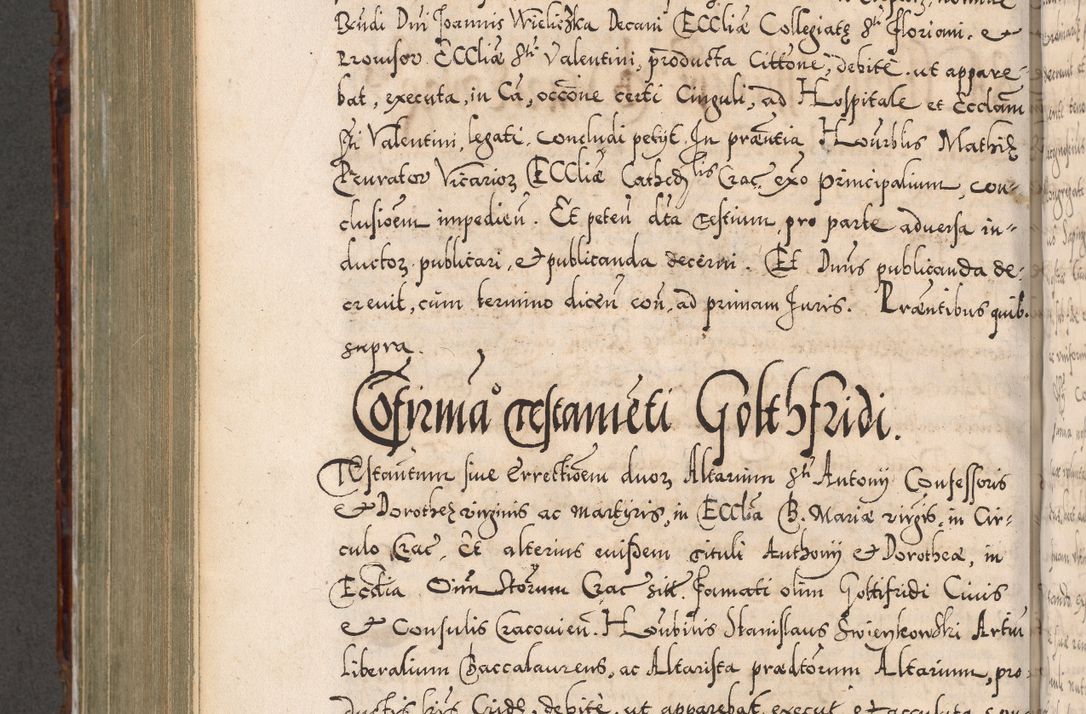 Brudi Dni Joannis Wieliczka Decani Ecclię Collegiatę Sti Floriani, et
Prouisor Ecclię Sti Valentini, producta Citone, debite, ut appare-
bat, executa, in Ca, occone certi Cinguli, ad Hospitale et Ecclam
Sti Valentini, legati. Concludi petyt. In præntia Hourblis Mathię
Preurator Vicarior Ecclię Cathedlis Crac. exo principalium, con-
clusioem impedien. Et peten dta testium, pro parte aduersa in-
ductor publicari, et publicanda decerni. Et Dnus publicanda de-
creuit, cum termino dicen con, ad primam Juris. Præntibus quib.
supra.
Cofirmao Testameti Goltthfridi.
Testautum siue Errectioem duor Altarium Sti Antonij Confessoris
et Dorothę virginis ac martyris, in Ecclia B. Mariæ virgis, in Cir-
culo Crac. Et alterius euisdem tituli Anthonij et Dorotheæ, in
Ecclia Oim Storum Crac sitt. Famati olim Gottifridi Ciuis
et Consulis Cracouien. Honbilis Stanislaus Swienykowski Artiu
Liberalium Baccalaureus, ac Altarista prædtorum Altarium, pro-
ductis his debite, ut apparebat, execut et